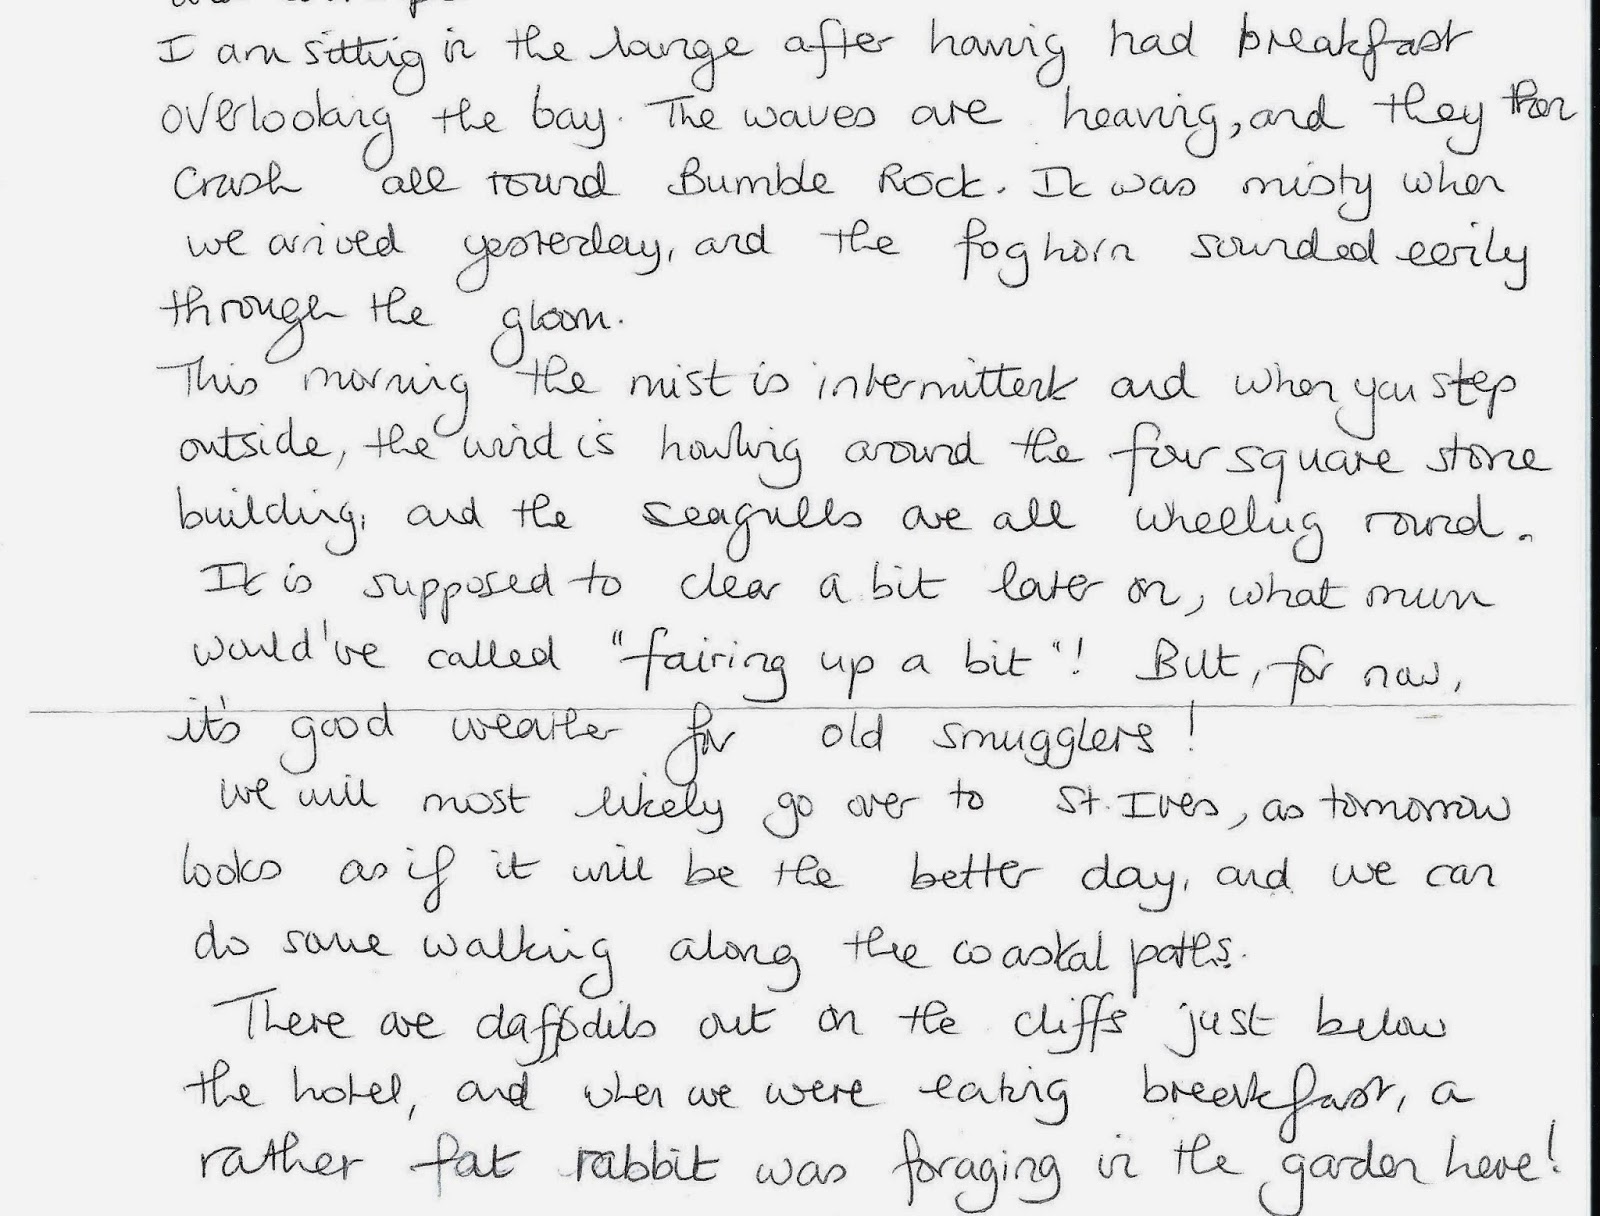 I am sitting in the lounge after having had breakfast
overlooking the bay. The waves are heaving, and they then
crash all round Bumble Rock. It was misty when
we arrived yesterday, and the foghorn sounded eerily
through the gloom.
This morning the mist is intermittent and when you step
outside, the wind is howling around the four square stone
building, and the seagulls are all wheeling round.
It is supposed to clear a bit later on, what mum
would've called "fairing up a bit"! But, for now,
it's good weather for old smugglers!
We will most likely go over to St. Ives, as tomorrow
looks as if it will be the better day, and we can
do some walking along the coastal paths.
There are daffodils out on the cliffs just below
the hotel, and when we were eating breakfast, a
rather fat rabbit was foraging in the garden here!